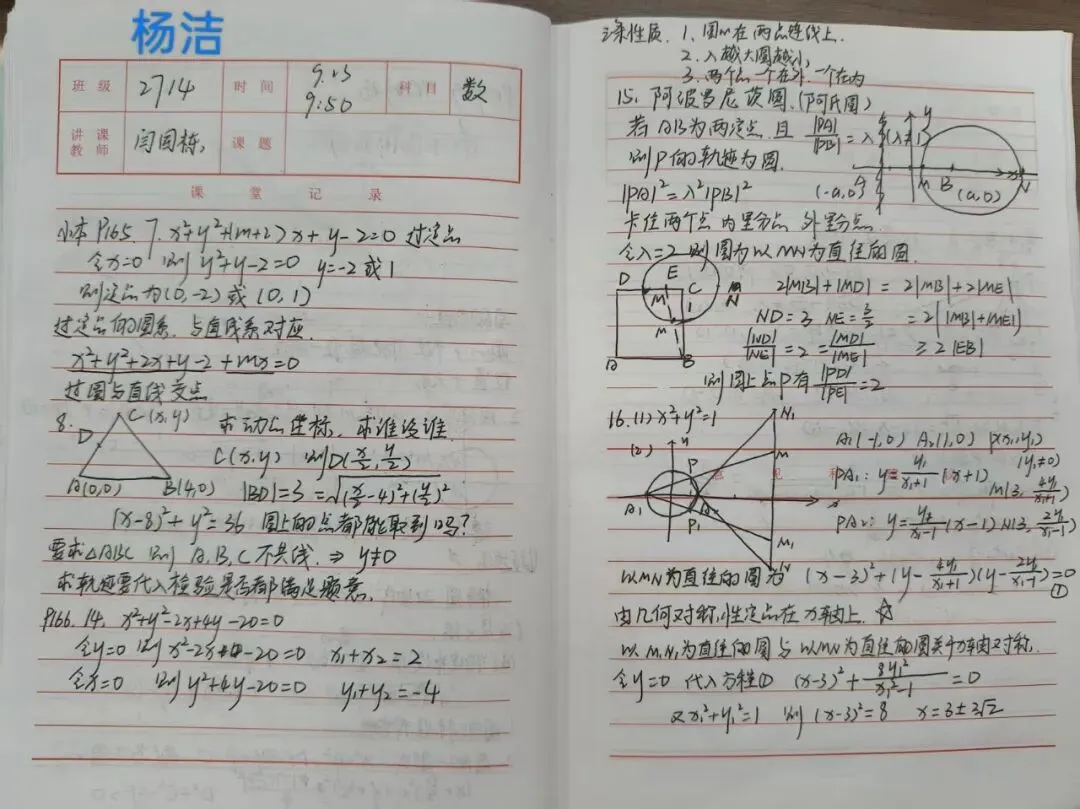 杨洁
班级 2714 时间 9.15 9:50 科目 数
讲课教师 闫国栋 课题
课堂记录
小本 P165. 7. x²+y²+(m+2)x+y-2=0 过定点
令x=0 则 y²+y-2=0 y=-2 或 1
则定点为(0,-2)或(0,1)
过定点的圆系,与直线系对应
x²+y²+2x+y-2+mx=0
过圆与直线交点
8. C(x,y) D A(0,0) B(4,0)
求动点坐标,求谁设谁.
C(x,y) 则D(x/2,y/2)
|BD|=3=√((x/2-4)²+(y/2)²
(x-8)²+y²=36 圆上的点都能取到吗?
要求△ABC 则 A,B,C不共线 ⇒ y≠0
求轨迹要代入检验是否都满足题意.
P166. 14. x²+y²-2x+4y-20=0
令y=0 则 x²-2x-20=0 x₁+x₂=2
令x=0 则 y²+4y-20=0 y₁+y₂=-4
三条性质. 1. 圆心在两点连线上.
2. λ越大圆越小
3. 两个点一个在外一个在内
15. 阿波罗尼茨圆.(阿氏圆)
若AB为两定点 且 |PA|/|PB|=λ(λ≠1)
则P的轨迹为圆.
|PA|²=λ²|PB|² (-a,0) A M B (a,0) N x y
卡住两个点 内量分点 外量分点.
令λ=2 则圆为以MN为直径的圆.
D E C M N M A B
2|MB|+|MD| = 2|MB|+2|ME|
ND=3 NE=3/2 =2(|MB|+|ME|)
|ND|/|NE|=2=|MD|/|ME| ≥2|EB|
则圆上点P有|PD|/|PE|=2
16.(1) x²+y²=1
(2) y P A₁ A₂ P₁ N₁ M M₁ N x
A₁(-1,0) A₂(1,0) P(x₁,y₁)
PA₁: y=y₁/(x₁+1) (x+1) (y₁≠0)
M(3, 4y₁/(x₁+1))
PA₂: y=y₁/(x₁-1) (x-1) N(3, 2y₁/(x₁-1))
意见和
以MN为直径的圆为 (x-3)²+(y-4y₁/(x₁+1))(y-2y₁/(x₁-1))=0 ①
由几何对称性定点在x轴上. ☆
以M₁N₁为直径的圆与以MN为直径的圆关于x轴对称.
令y=0 代入方程① (x-3)²+8y₁²/(x₁²-1)=0
又x₁²+y₁²=1 则 (x-3)²=8 x=3±3√2